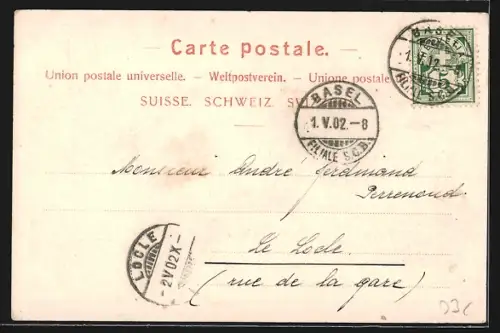 Carte postale.
Union postale universelle. – Weltpostverein. – Unione postale
SUISSE. SCHWEIZ.
BASEL
1.V.02.–8
FILIALE S.C.B.
BASEL
1.V.02.
5
Monsieur André Ferdinand
Perrenoud
Le Locle
(rue de la gare)
LOCLE
-2V02X-